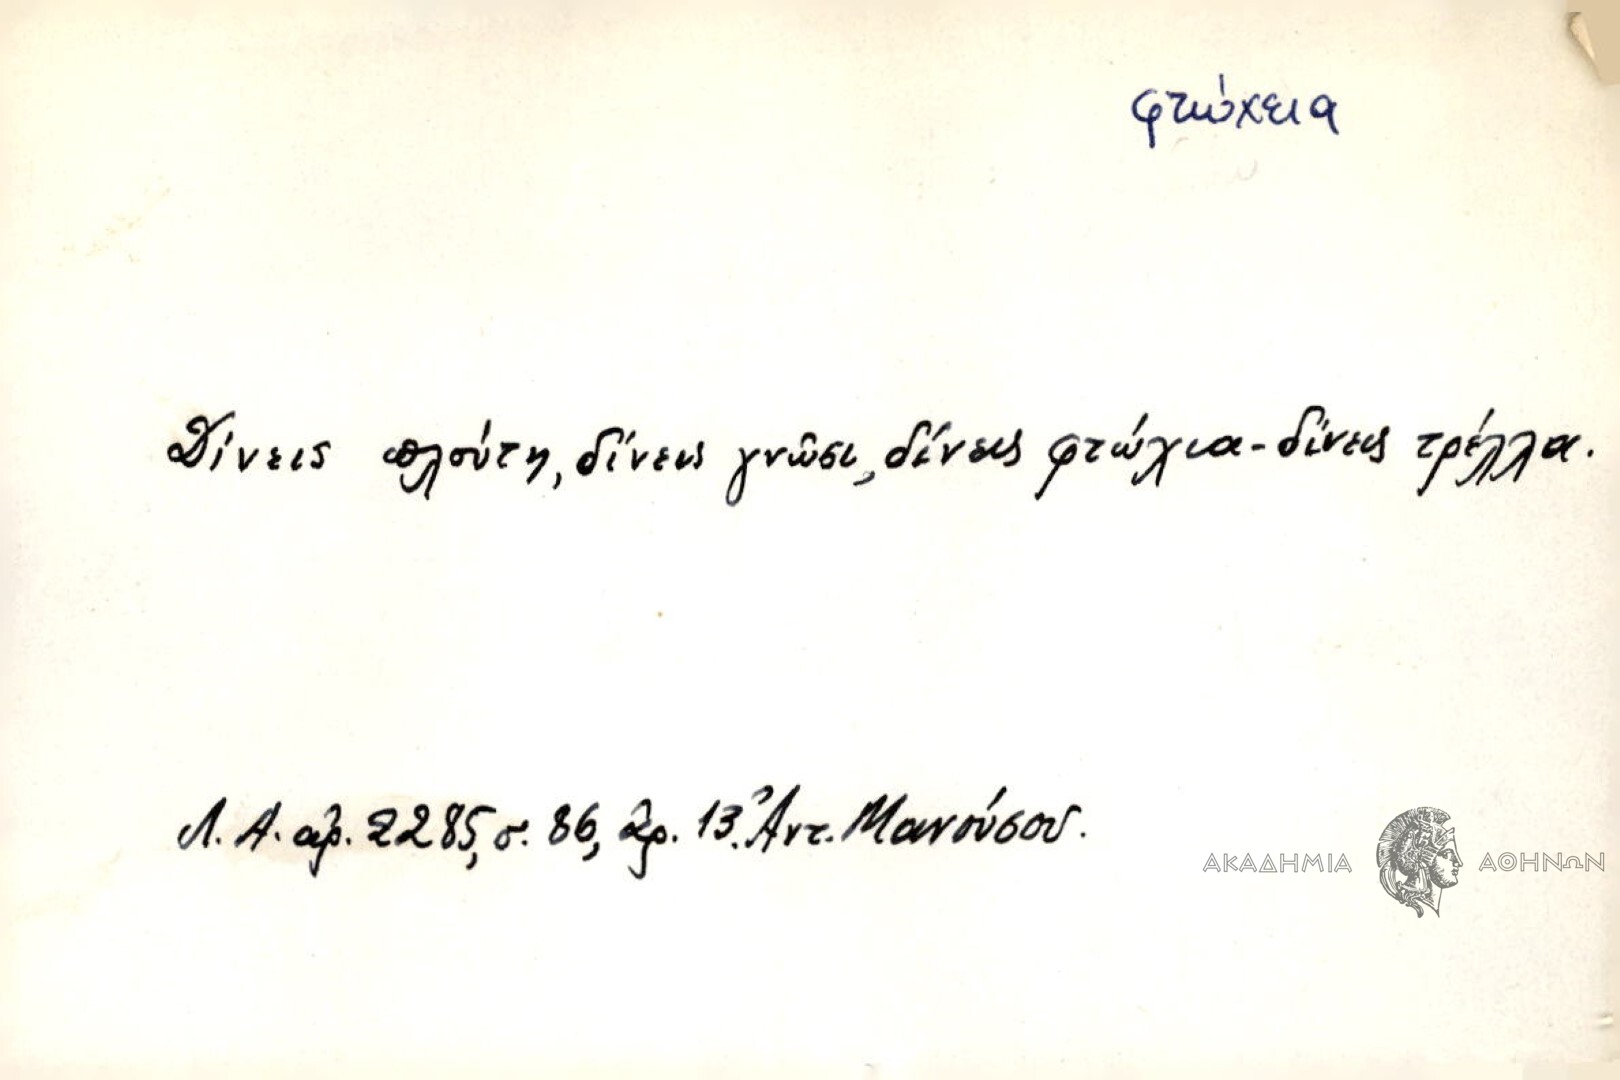 φτώχεια
Δίνεις πλούτη, δίνεις γνῶσι, δίνεις φτώχια - δίνεις τρέλλα.
Λ. Α. ἀρ. 2285, σ. 86, ἀρ. 13. Ἀντ. Μανούσου.
ΑΚΑΔΗΜΙΑ ΑΘΗΝΩΝ